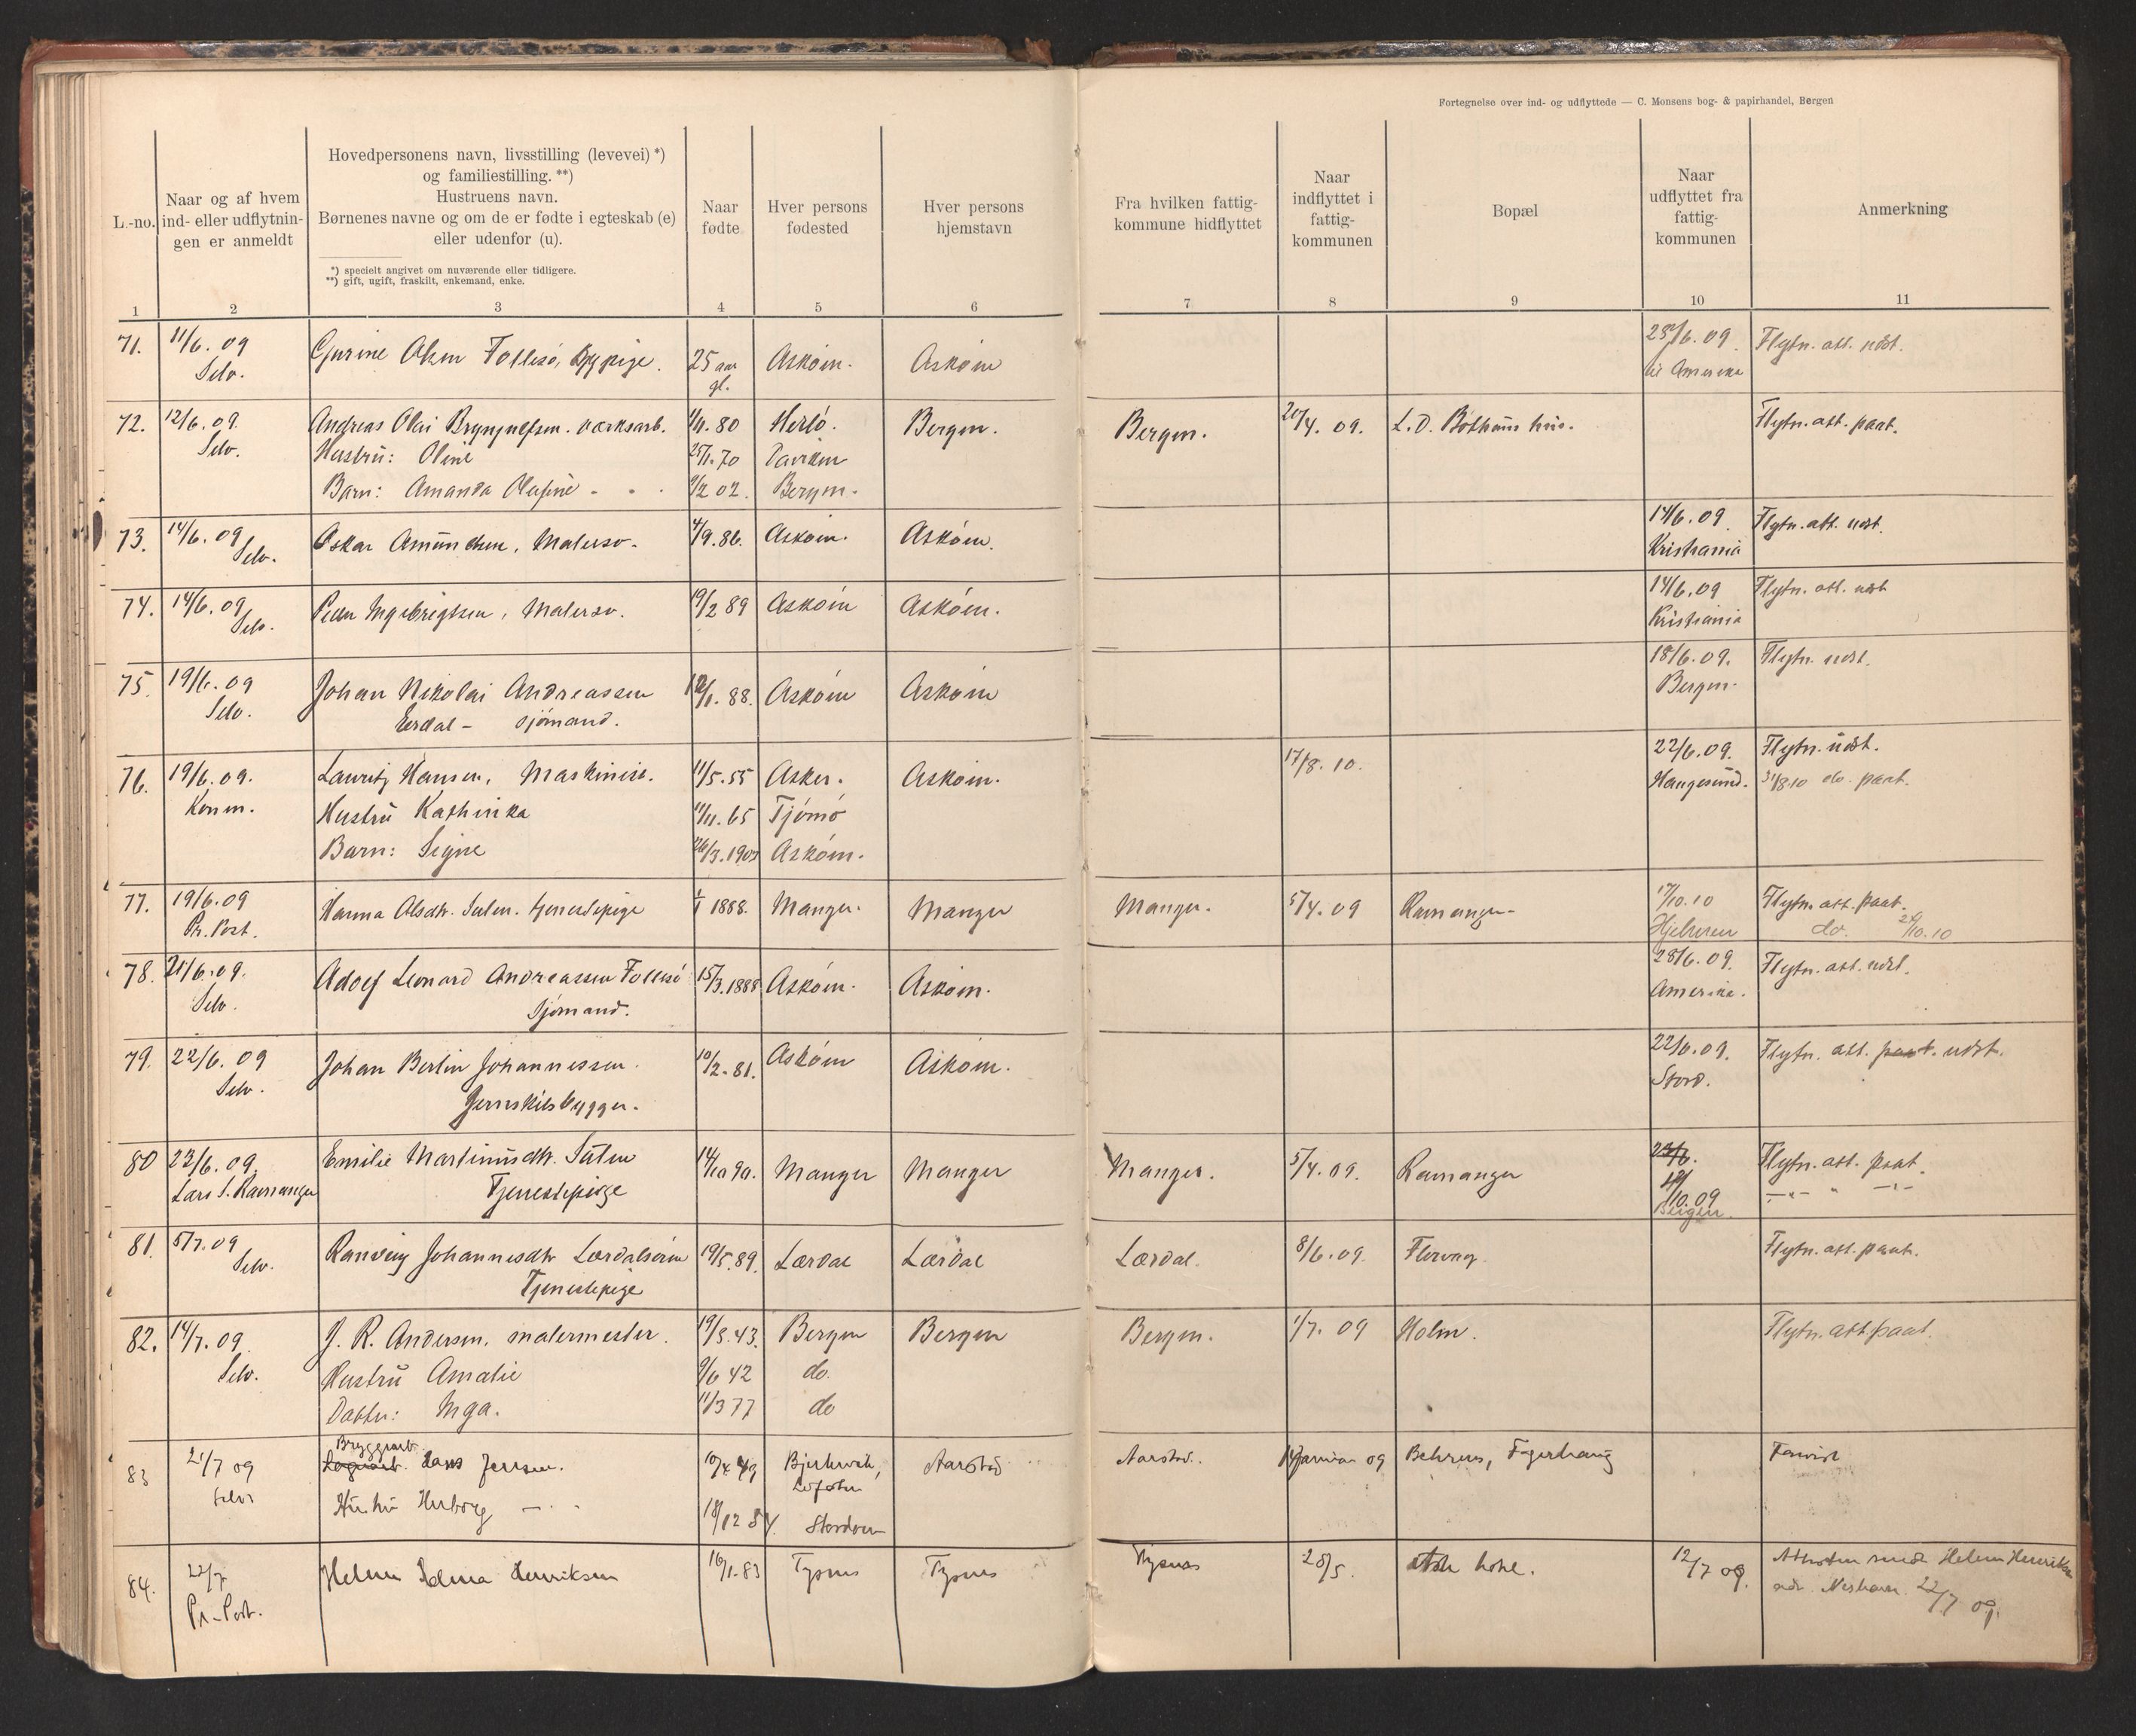 Fortegnelse over ind- og udflyttede — C. Monsens bog- & papirhandel, Bergen
L.-no.
Naar og af hvem ind- eller udflytnin- gen er anmeldt
Hovedpersonens navn, livsstilling (levevei) *)
og familiestilling. **)
Hustruens navn.
Børnenes navne og om de er fødte i egteskab (e)
eller udenfor (u).
*) specielt angivet om nuværende eller tidligere.
**) gift, ugift, fraskilt, enkemand, enke.
Naar fødte
Hver persons fødested
Hver persons hjemstavn
Fra hvilken fattig- kommune hidflyttet
Naar indflyttet i fattig- kommunen
Bopæl
Naar udflyttet fra fattig- kommunen
Anmerkning
1 2 3 4 5 6 7 8 9 10 11
71. 11/6. 09 Gurine Olsen Follesö, 25 aar Asköen. Asköen 28/6. 09. Flytn. att. udst.
Selv. gl. til Amerika
72. 12/6. 09. Andreas Olai Brynjulfsen. værksarb. 1/11. 80 Herlö. Bergen. Bergen. 20/4. 09. L. D. hus. Flytn. att. paat.
Selv. Hustru: Oline 25/1. 70 Daviken
Barn: Amanda Olufine - - - 9/2 02. Bergen.
73. 14/6. 09 Oskar Amundsen, Malersv. 4/9. 86. Asköen. Asköen. 14/6. 09. Flytn. att. udst.
Selv. Kristiania
74. 14/6. 09 Peder Ingebrigtsen, Malersv. 19/2 89 Asköen Asköen. 14/6. 09 Flytn. att. udst
Selv. Kristiania
75. 19/6. 09 Johan Nikolai Andreassen 88. Asköen Asköen 18/6. 09. Flytn. udst.
Selv. Erdal - sjömand. Bergen.
76. 19/6. 09. Lauritz Hansen, Maskinist. 11/5. 55 Asker. Asköen. 17/8. 10. 22/6. 09. Flytn. udst.
Konen. Hustru Kathinka 11/11. 65 Tjömö Haugesund. 31/8 10 do. paat.
Barn: Signe 26/3. 1903 Asköen.
77. 19/6. 09 Hanna Olsdtr. Sulen. tjenestepige 1/1 1888. Manger. Manger Manger. 5/4. 09 Ramanger 17/10. 10 Flytn. att. paat.
Pr. Post. Hjelmen do. 24/10. 10
78. 21/6. 09. Adolf Leonard Andreassen Follesö 15/3. 1888 Asköen. Asköen. 28/6. 09. Flytn. att. udst.
Selv. Sjömand. Amerika.
79. 22/6. 09 Johan Bertin Johannessen. 10/2. 81. Asköen Asköen. 22/6. 09. Flytn. att. paat. udst.
Selv. Jernskibsbygger. Stord.
80 23/6. 09. Emilie Martinusdtr. Sulen 14/10 90. Manger Manger Manger. 5/4. 09. Ramanger 23/6. Flytn. att. paat.
Lars S. Ramanger Tjenestepige 10. 09
Bergen.
81. 5/7. 09 Ranveig Johannesdtr Lærdalsören 19/5. 89. Lærdal Lærdal Lærdal. 8/6. 09. Florvaag. Flytn. att. paat.
Selv. Tjenestepige
82. 14/7. 09. J. R. Andersen. malermester. 19/8. 43. Bergen Bergen Bergen. 1/7. 09 Holm. Flytn. att paat.
Selv. Hustru Amalie 9/6 42 do.
Datter: Inga. 11/3 77 do
Bryggearb.
83 21/7 09 Hans Jensen. 10/4 49 Aarstad Aarstad. januar 09 Behrens, Fagerhaug
Selv Lofoten
Hustru Herborg - - - 18/12 54. Stordöen
84. 22/7 Helene Helena Henriksen 16/1. 83 Tysnes Tysnes Tysnes 28/5. hotel. 12/7 09. Helene Henriksen
Pr. Post. 22/7 09.